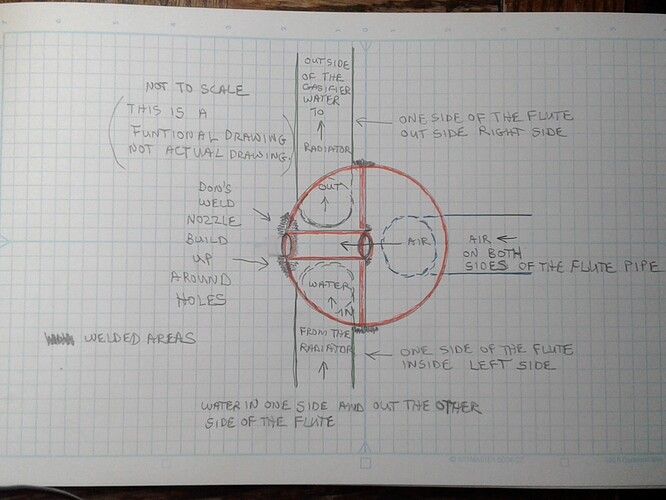 NOT TO SCALE
THIS IS A
FUNTIONAL DRAWING
NOT ACTUAL DRAWING.
OUTSIDE
OF THE
GASIFIER
WATER
TO
RADIATOR
ONE SIDE OF THE FLUTE
OUT SIDE RIGHT SIDE
DON'S
WELD
NOZZLE
BUILD
UP
AROUND
HOLES
OUT
AIR
AIR
ON BOTH
SIDES OF THE FLUTE PIPE
WATER
IN
FROM THE
RADIATOR
WELDED AREAS
ONE SIDE OF THE FLUTE
INSIDE LEFT SIDE
WATER IN ONE SIDE AND OUT THE OTHER
SIDE OF THE FLUTE